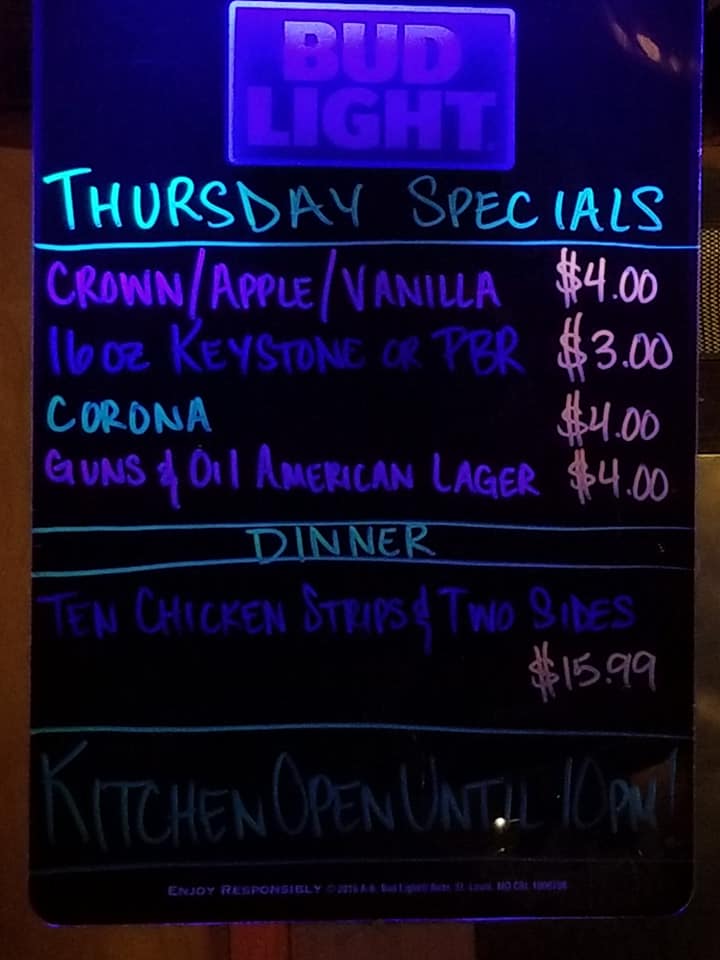 BUD
LIGHT
THURSDAY SPECIALS
CROWN/APPLE/VANILLA $4.00
16 OZ KEYSTONE OR PBR $3.00
CORONA $4.00
GUNS & OIL AMERICAN LAGER $4.00
DINNER
TEN CHICKEN STRIPS & TWO SIDES
$15.99
KITCHEN OPEN UNTIL 10PM!
ENJOY RESPONSIBLY © A-B, Bud Light® Beer, St. Louis, MO